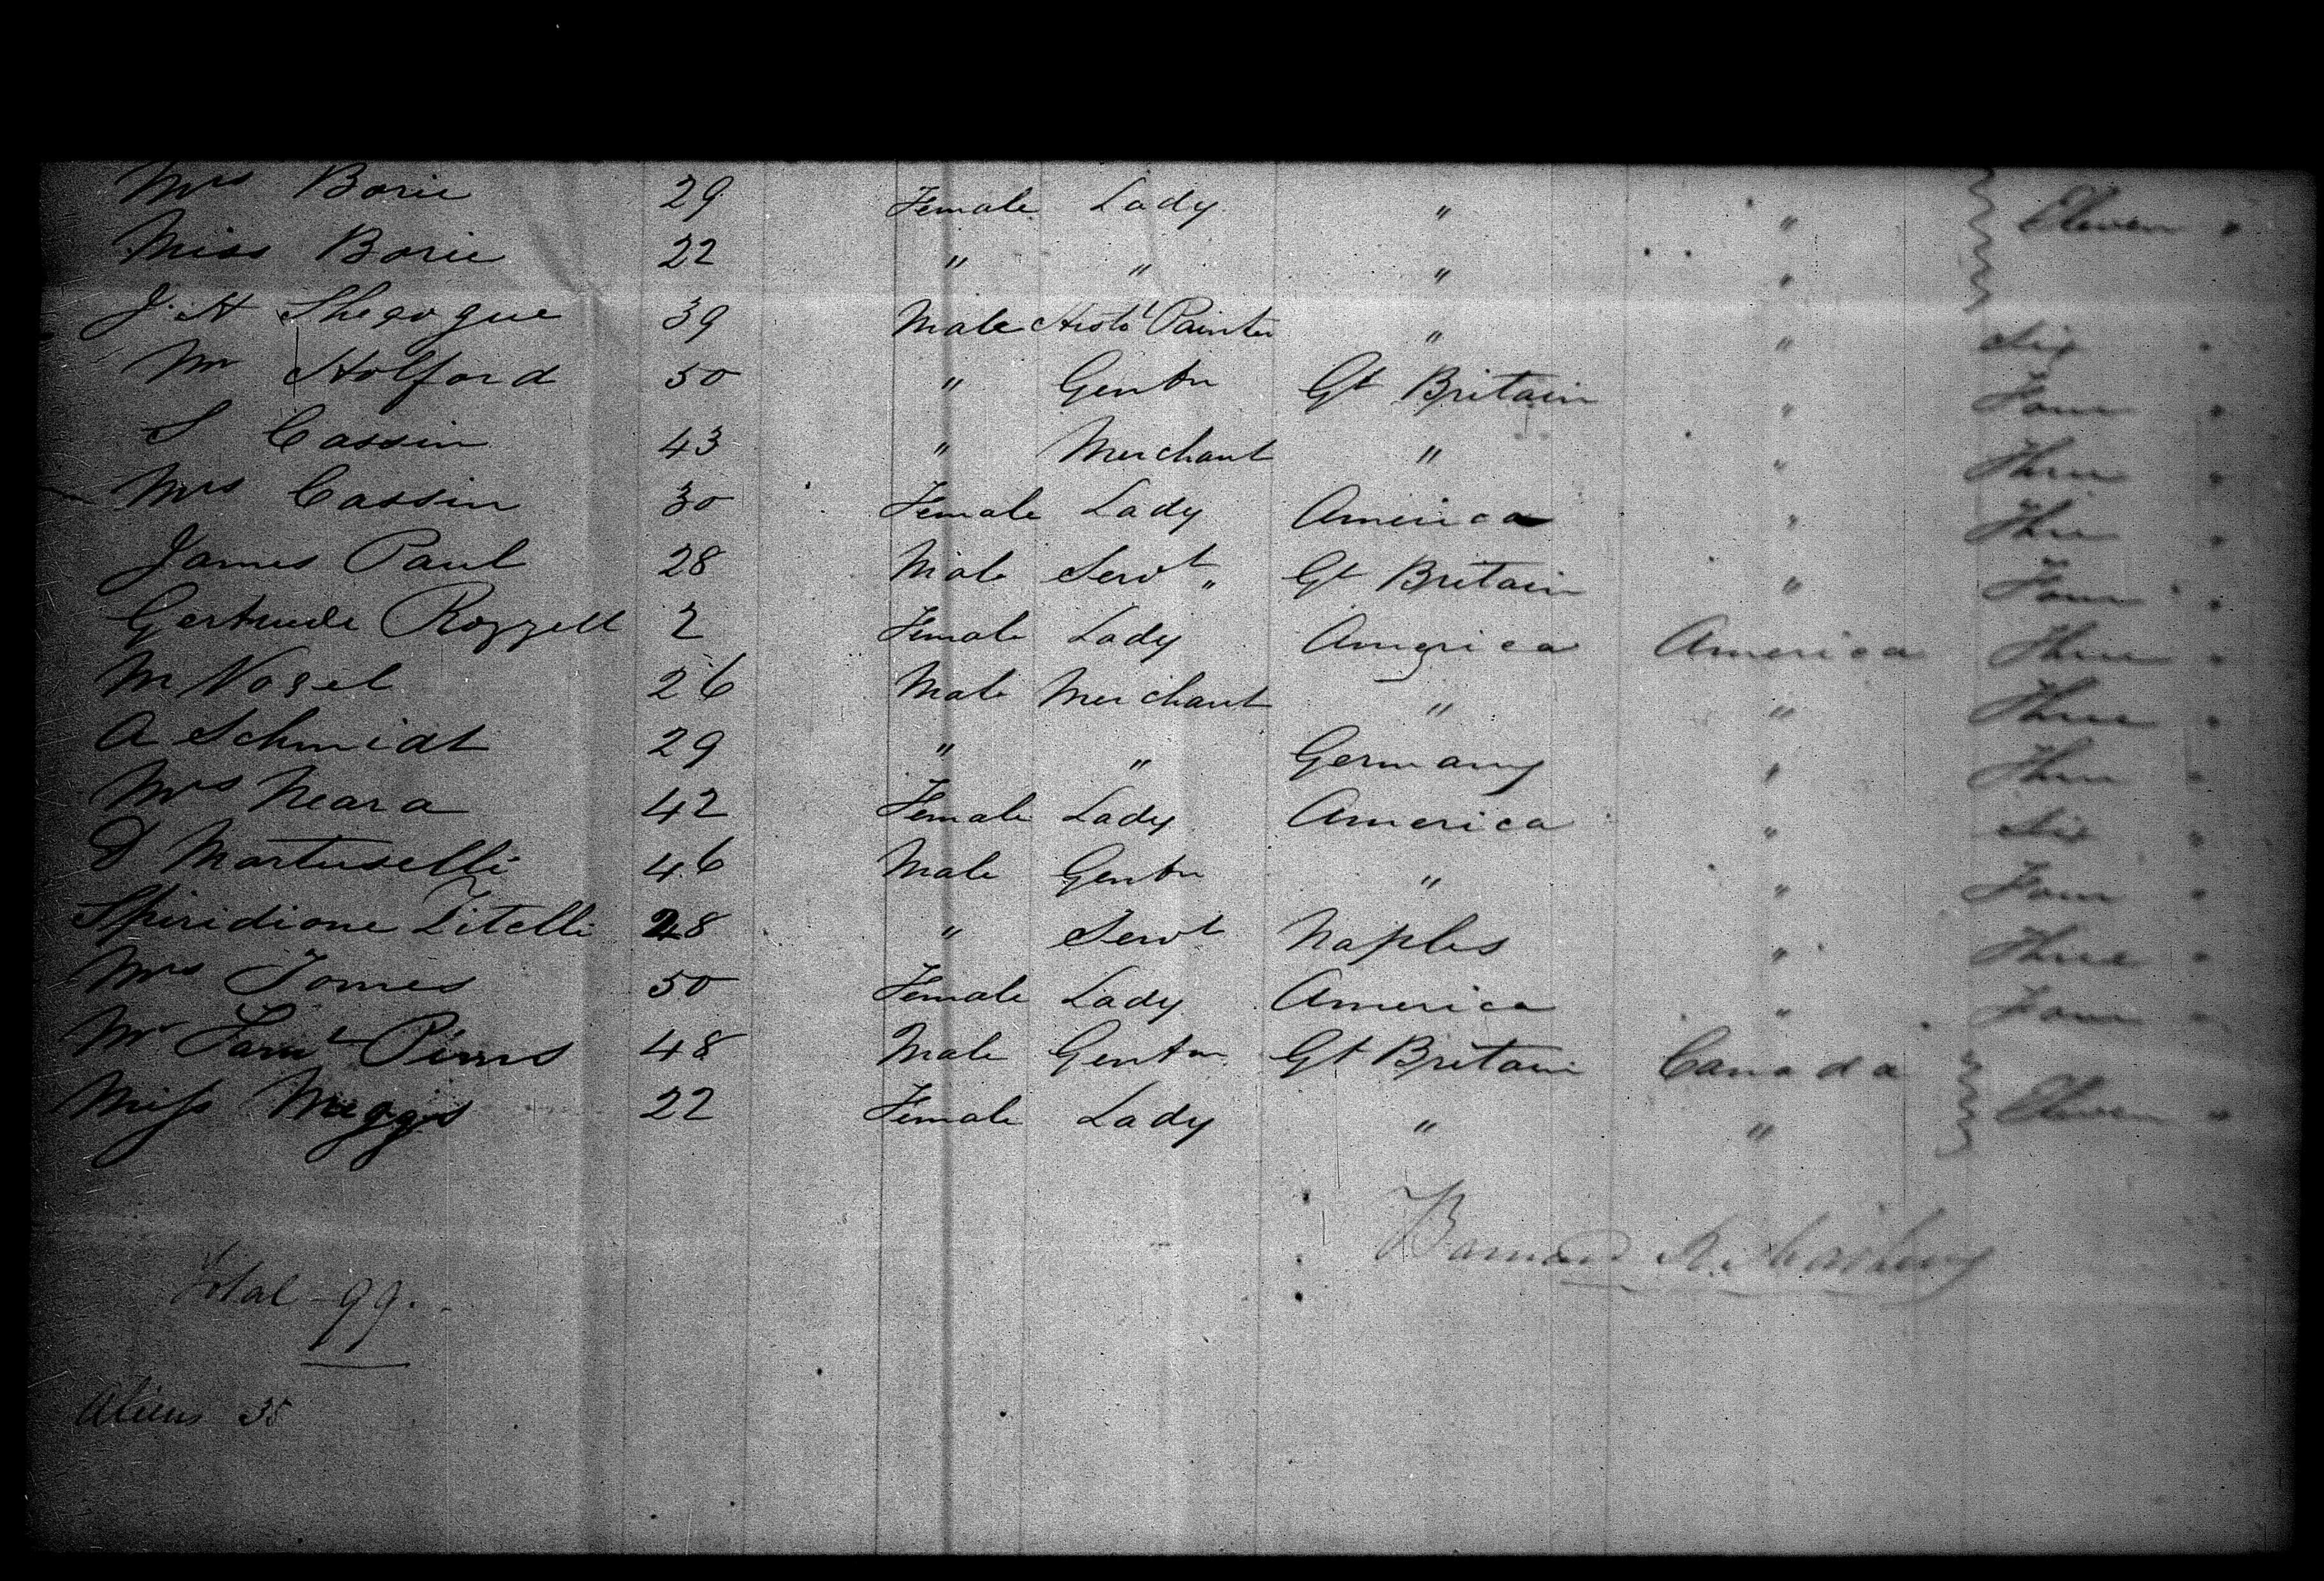 Mrs Borie 29 Female Lady " " Eleven "
Miss Borie 22 " " " "
J. H Shegogue 39 Male Histol Painter " " Six "
Mr Holford 50 " Gentn Gt Britain " Four "
S Cassin 43 " Merchant " " Three "
Mrs Cassin 30 Female Lady America " Three "
James Paul 28 Male Servt " Gt Britain " Four "
Gertrude Rozzell 2 Female Lady America America Three "
M Nogel 26 Male Merchant " " Three "
A Schmidt 29 " " Germany " Three "
Mrs Meara 42 Female Lady America " Six "
D Martuselli 46 Male Gentn " " Four "
Spiridione Zitelli 28 " Servt Naples " Three "
Mrs Tomes 50 Female Lady America " Four "
Mr Saml Pirms 48 Male Gentn Gt Britain Canada Eleven "
Miss Meggs 22 Female Lady " "
Barnard R.
Total - 99.
Aliens 35